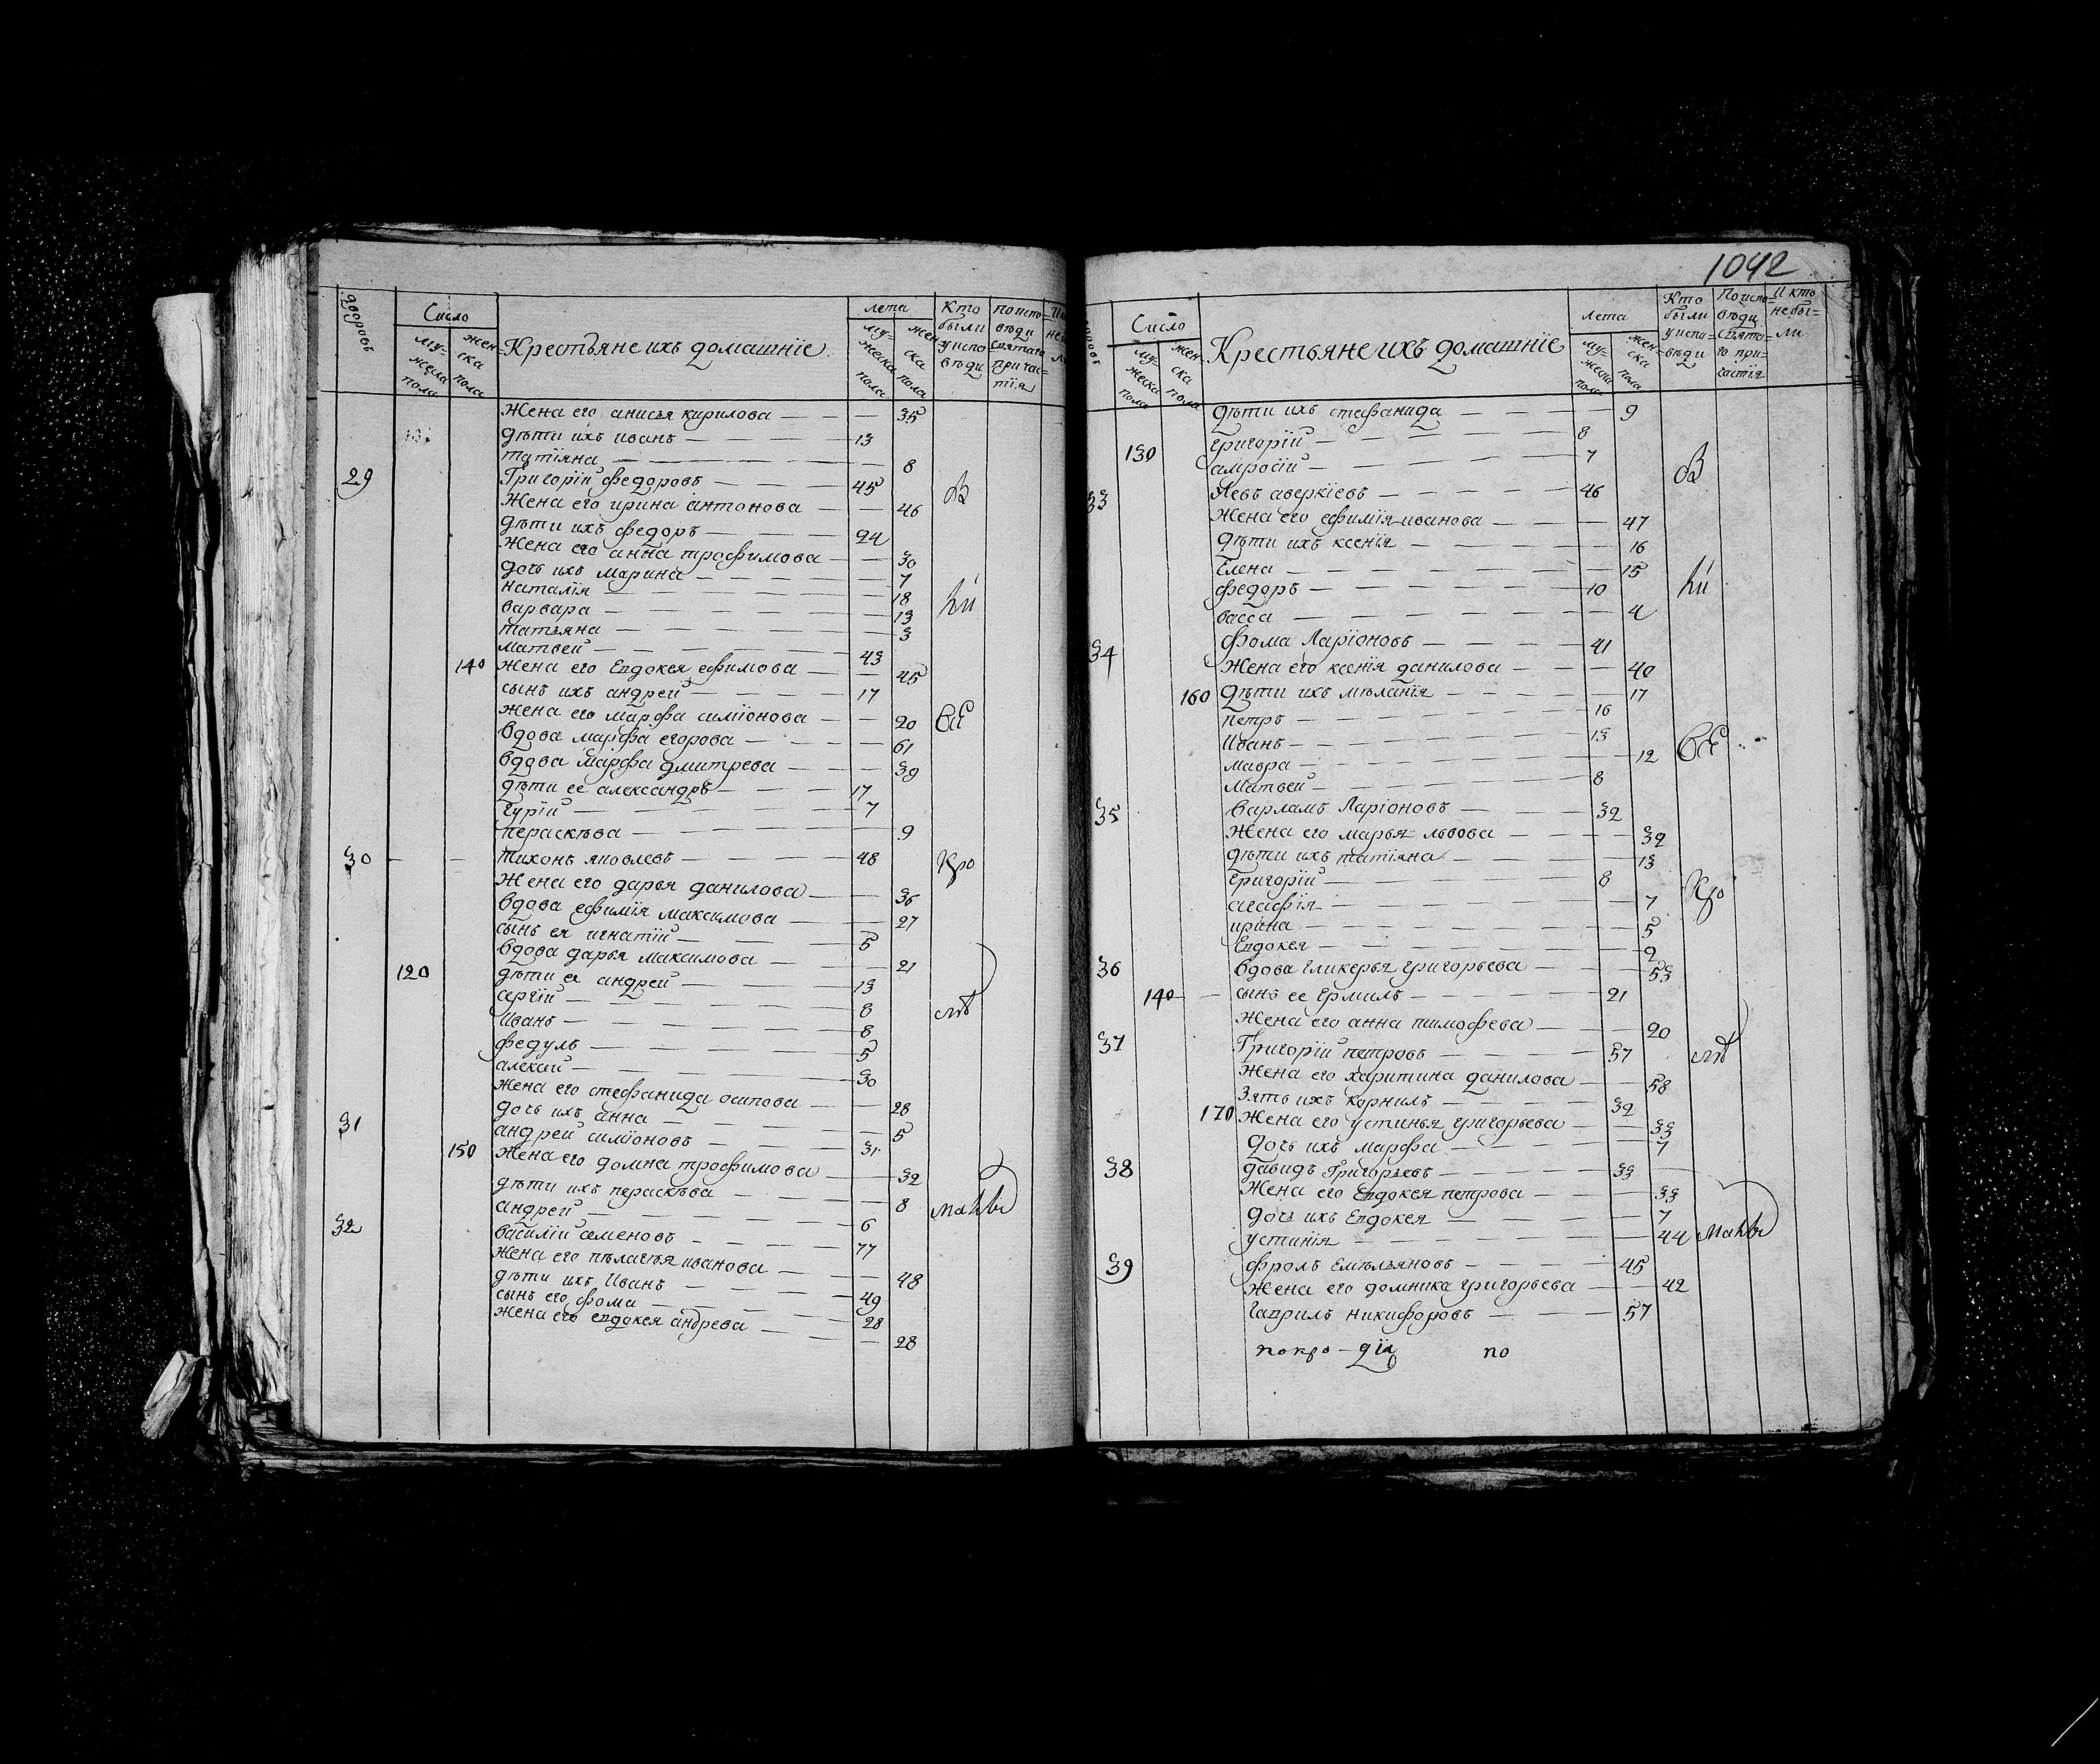 дворовъ
Число
мужеска пола
женска пола
Крестьяне ихъ домашнїе
лета
мужеска пола
женска пола
Кто были у исповѣди
По исповѣди святаго причастїя
Жена его анисья кирилова 35
дѣти ихъ иванъ 13
татїяна 8
29 Григорїй федоровъ 45
Жена его ирина антонова 46
дѣти ихъ федоръ 24
Жена его анна трофимова 30
дочь ихъ марина 7
наталїя 18
варвара 13
татьяна 3
матвей 43
140 Жена его Евдокея ефимова 45
сынъ ихъ андрей 17
жена его марфа симїонова 20
вдова марфа егорова 61
вдова марфа дмитрева 39
дѣти ее александръ 17
гурїй 7
перасквева 9
30 тихонъ яковлевъ 48
Жена его дарья данилова 36
вдова ефимїя максимова 27
сынъ ея игнатїй 5
вдова дарья максимова 21
120 дѣти ея андрей 13
сергїй 8
Иванъ 8
федулъ 5
алексѣй 30
жена его стефанида осипова 28
дочь ихъ анна 5
31 андрей симїоновъ 31
150 Жена его домна трофимова 32
дѣти ихъ перасквева 8
андрей 6
32 василїй семеновъ 77
жена его пѣлагея иванова 48
дѣти ихъ Иванъ 49
сынъ его фома 28
жена его евдокея андрева 28
1042
Число
мужеска пола
женска пола
Крестьяне ихъ домашнїе
лета
мужеска пола
женска пола
Кто были у исповѣди
По исповѣди святаго причастїя
И кто не были
дѣти ихъ стефанида 9
григорїй 8
130 амросїй 7
33 Левъ аверкїевъ 46
Жена его ефимїя иванова 47
дѣти ихъ ксенїя 16
Елена 15
федоръ 10
васса 4
34 Фома Ларїоновъ 41
Жена его ксенїя данилова 40
160 дѣти ихъ мѣланїя 17
петръ 16
Иванъ 13
мавра 12
Матвей 8
35 варламъ Ларїоновъ 32
Жена его марья львова 32
дѣти ихъ татїяна 13
григорїй 8
агафїя 7
ирина 5
Евдокея 2
36 вдова гликерья григорьева 53
140 сынъ ее Ермилъ 21
Жена его анна тимофева 20
37 Григорїй петровъ 57
Жена его харитина данилова 58
Зять ихъ Корнилъ 32
170 Жена его устинья григорьева 33
дочь ихъ марфа 7
38 давидъ Григорьевъ 33
Жена его Евдокея петрова 33
дочь ихъ Евдокея 7
устинїя 44
39 фролъ Емѣльяновъ 45
Жена его домника григорьева 42
Гаврилъ никифоровъ 57